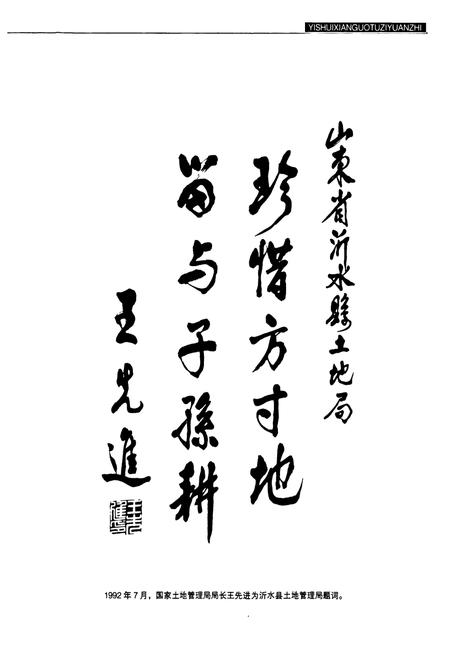 YISHUIXIANGUOTUZIYUANZHI
山東省沂水縣土地局
珍惜方寸地
留与子孫耕
王先進
1992年7月，国家土地管理局局长王先进为沂水县土地管理局题词。